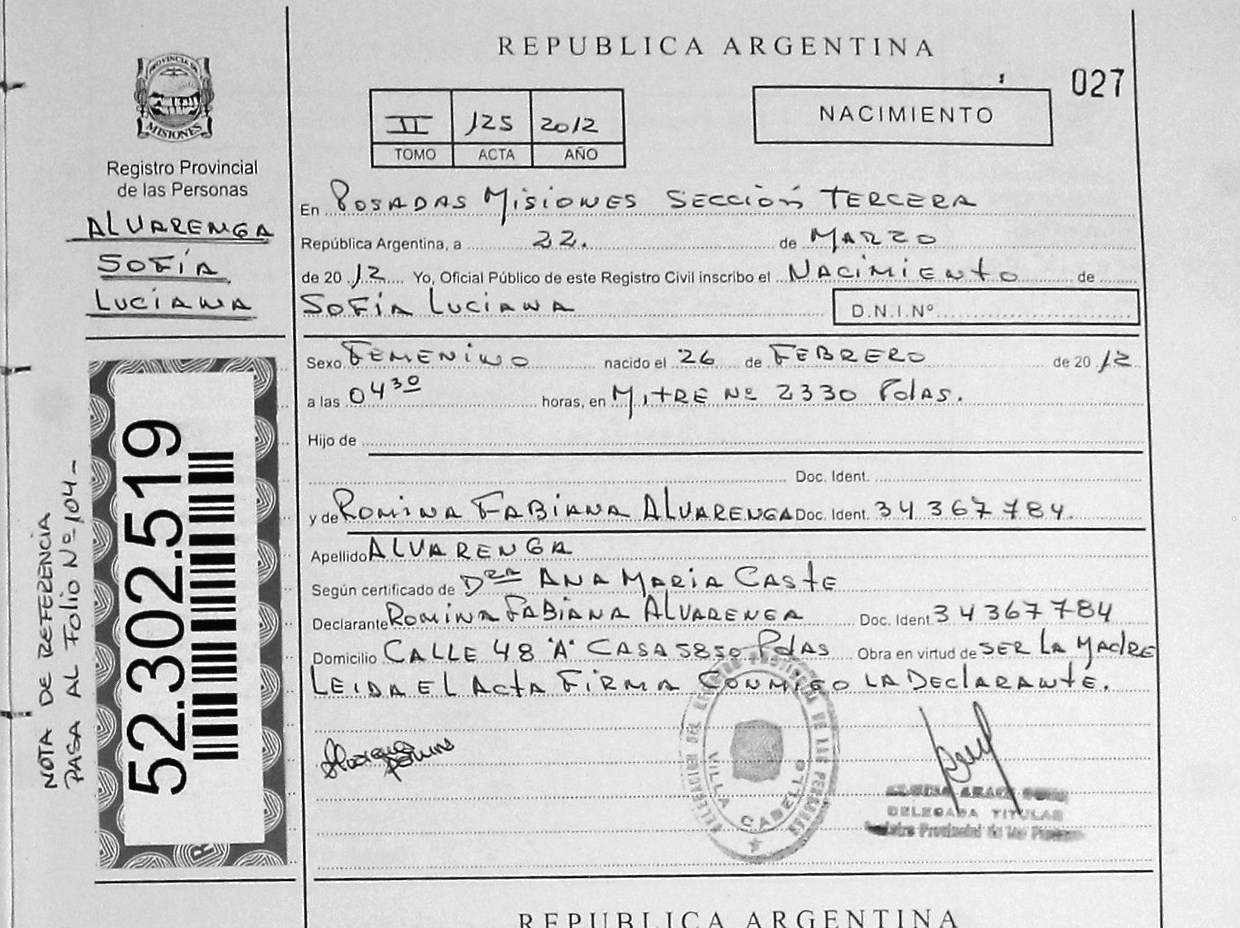 REPUBLICA ARGENTINA
027
NACIMIENTO
II 125 2012
TOMO ACTA AÑO
PROVINCIA DE
MISIONES
Registro Provincial
de las Personas
ALVARENGA
SOFÍA
LUCIANA
52.302.519
NOTA DE REFERENCIA
PASA AL FOLIO Nº 104-
En POSADAS MISIONES SECCIÓN TERCERA
República Argentina, a 22. de MARZO
de 2012 Yo, Oficial Público de este Registro Civil inscribo el NACIMIENTO de
SOFÍA LUCIANA D.N.I.Nº
Sexo FEMENINO nacido el 26 de FEBRERO de 2012
a las 04³⁰ horas, en MITRE Nº 2330 Pdas.
Hijo de
Doc. Ident.
y de ROMINA FABIANA ALVARENGA Doc. Ident. 34367784.
Apellido ALVARENGA
Según certificado de Dra ANA MARIA CASTE
Declarante ROMINA FABIANA ALVARENGA Doc. Ident. 34367784
Domicilio CALLE 48 "A" CASA 5850 Pdas Obra en virtud de SER LA MADRE
LEIDA EL ACTA FIRMA CONMIGO LA DECLARANTE.
VILLA CABELLO
DELEGADA TITULAR
Registro Provincial de las Personas
REPUBLICA ARGENTINA